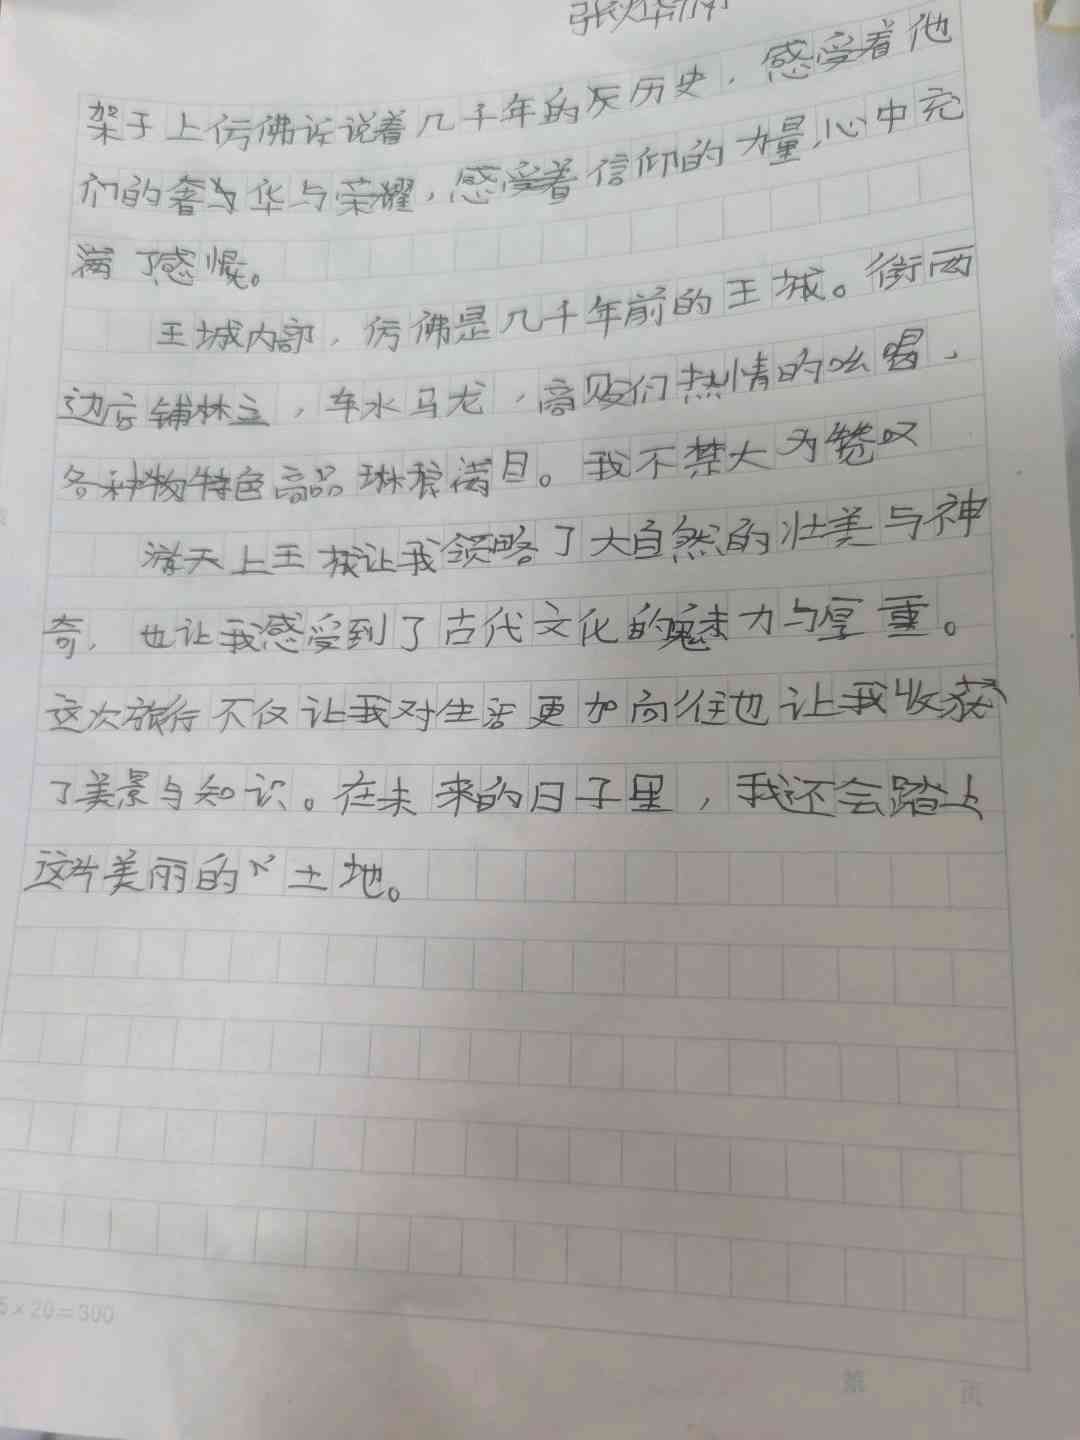 架子上仿佛诉说着几千年的历史，感受着他
们的奢华与荣耀，感受着信仰的力量，心中充
满了感慨。
王城内部，仿佛是几千年前的王城。街两
边店铺林立，车水马龙，商贩们热情的吆喝、
各种物特色商品琳琅满目。我不禁大为赞叹
满天上王城让我领略了大自然的壮美与神
奇，也让我感受到了古代文化的魅力与厚重。
这次旅行不仅让我对生活更加向往也让我收获
了美景与知识。在未来的日子里，我还会踏上
这片美丽的土地。
5×20=300
第 页